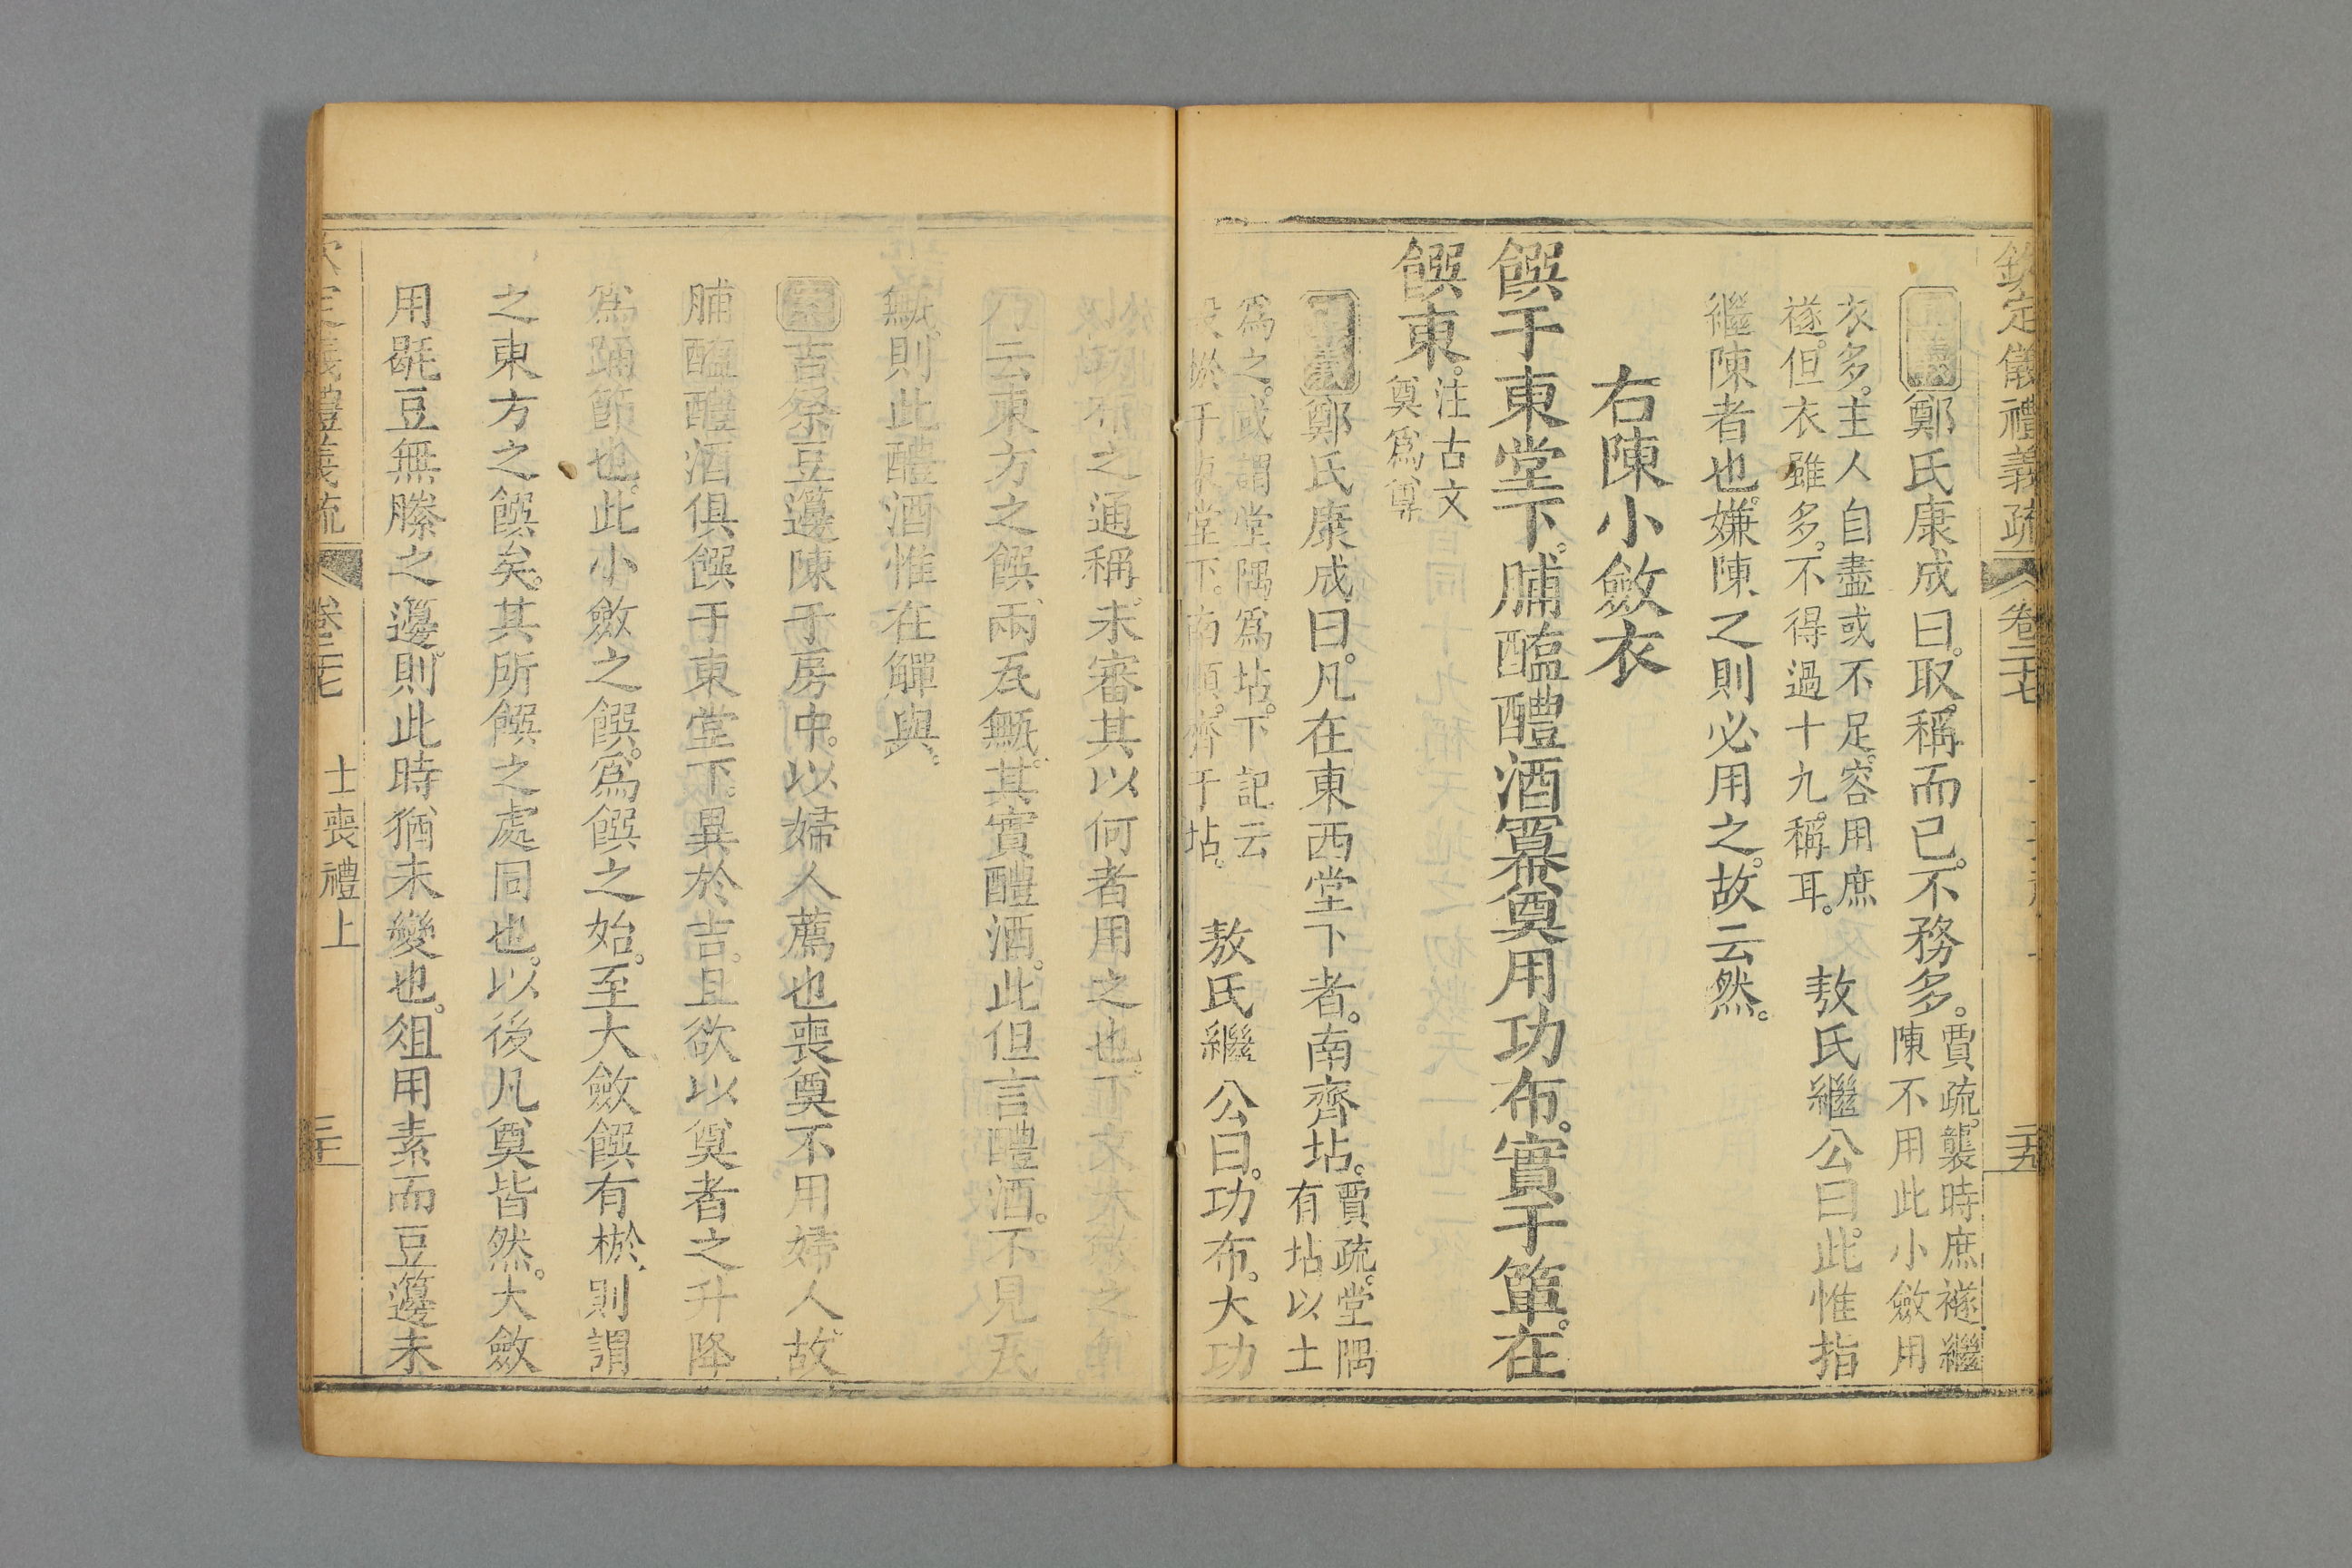 欽定儀禮義疏 卷二十七 二十九
正義鄭氏康成曰。取稱而已。不務多。賈疏。襲時庶襚繼
陳不用此小斂用
衣多。主人自盡或不足。容用庶
襚。但衣雖多。不得過十九稱耳。敖氏繼公曰。此惟指
繼陳者也。嫌陳之則必用之。故云然。
右陳小斂衣
饌于東堂下。脯醢醴酒冪奠用功布。實于簞。在
饌東。注古文
奠爲尊
正義鄭氏康成曰。凡在東西堂下者。南齊坫。賈疏。堂隅
有坫以土
爲之。或謂堂隅爲坫。下記云
設棜于東堂下。南順。齊于坫。敖氏繼公曰。功布。大功
布之通稱。未審其以何者用之也。下文大斂之
云東方之饌。兩瓦甒。其實醴酒。此但言醴酒。不見瓦
甒。則此醴酒惟在觶與。
案吉祭豆籩陳于房中。以婦人薦也喪奠不用婦人。故
脯醢醴酒俱饌于東堂下。異於吉。且欲以奠者之升降
爲踊節也。此小斂之饌。爲饌之始。至大斂饌有棜。則謂
之東方之饌矣。其所饌之處同也。以後凡奠皆然。大斂
用毼豆無縢之籩。則此時猶未變也。俎用素而豆籩未
欽定儀禮義疏 卷二十七 士喪禮上 三十